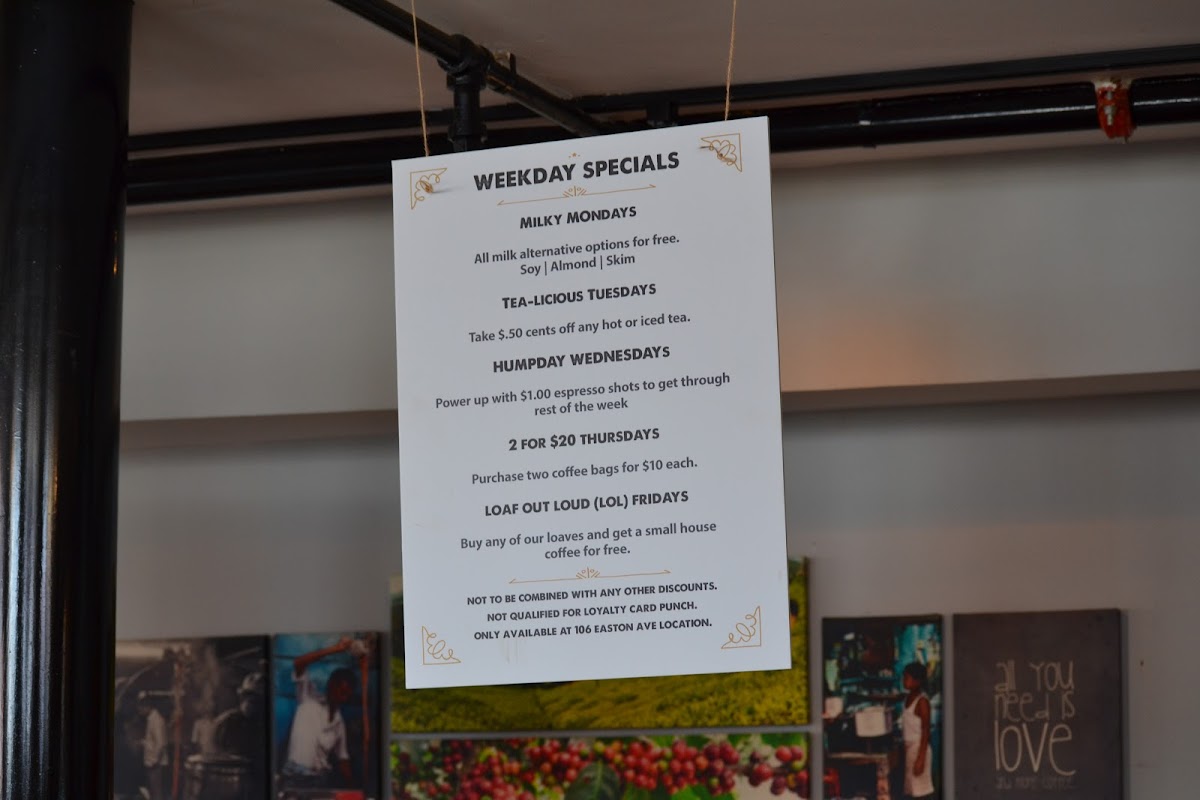 WEEKDAY SPECIALS
MILKY MONDAYS
All milk alternative options for free.
Soy | Almond | Skim
TEA-LICIOUS TUESDAYS
Take $.50 cents off any hot or iced tea.
HUMPDAY WEDNESDAYS
Power up with $1.00 espresso shots to get through
rest of the week
2 FOR $20 THURSDAYS
Purchase two coffee bags for $10 each.
LOAF OUT LOUD (LOL) FRIDAYS
Buy any of our loaves and get a small house
coffee for free.
NOT TO BE COMBINED WITH ANY OTHER DISCOUNTS.
NOT QUALIFIED FOR LOYALTY CARD PUNCH.
ONLY AVAILABLE AT 106 EASTON AVE LOCATION.
all you
need is
love
and more coffee